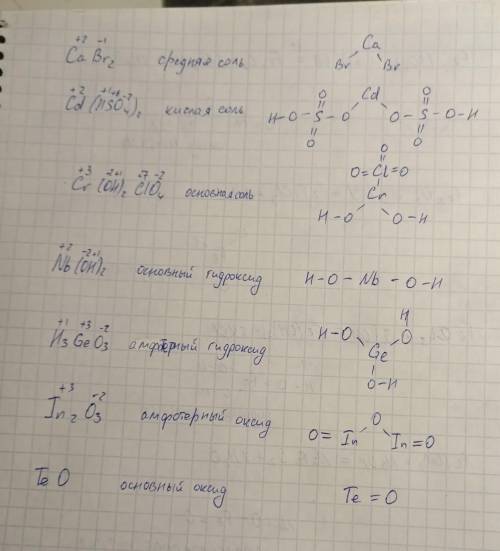 +2 -1
CaBr2 средняя соль Ca Br Br
+2 +1+6-2
Cd(HSO4)2 кислая соль H-O-S-O Cd O-S-O-H O O O O
+3 -2+1 +7 -2
Cr(OH)2ClO4 основная соль O O=Cl=O Cr H-O O-H
+2 -2+1
Nb(OH)2 основный гидроксид H-O-Nb-O-H
+1 +3 -2
H3GeO3 амфотерный гидроксид H-O Ge O H O-H
+3 -2
In2O3 амфотерный оксид O=In O In=O
TeO основный оксид Te=O